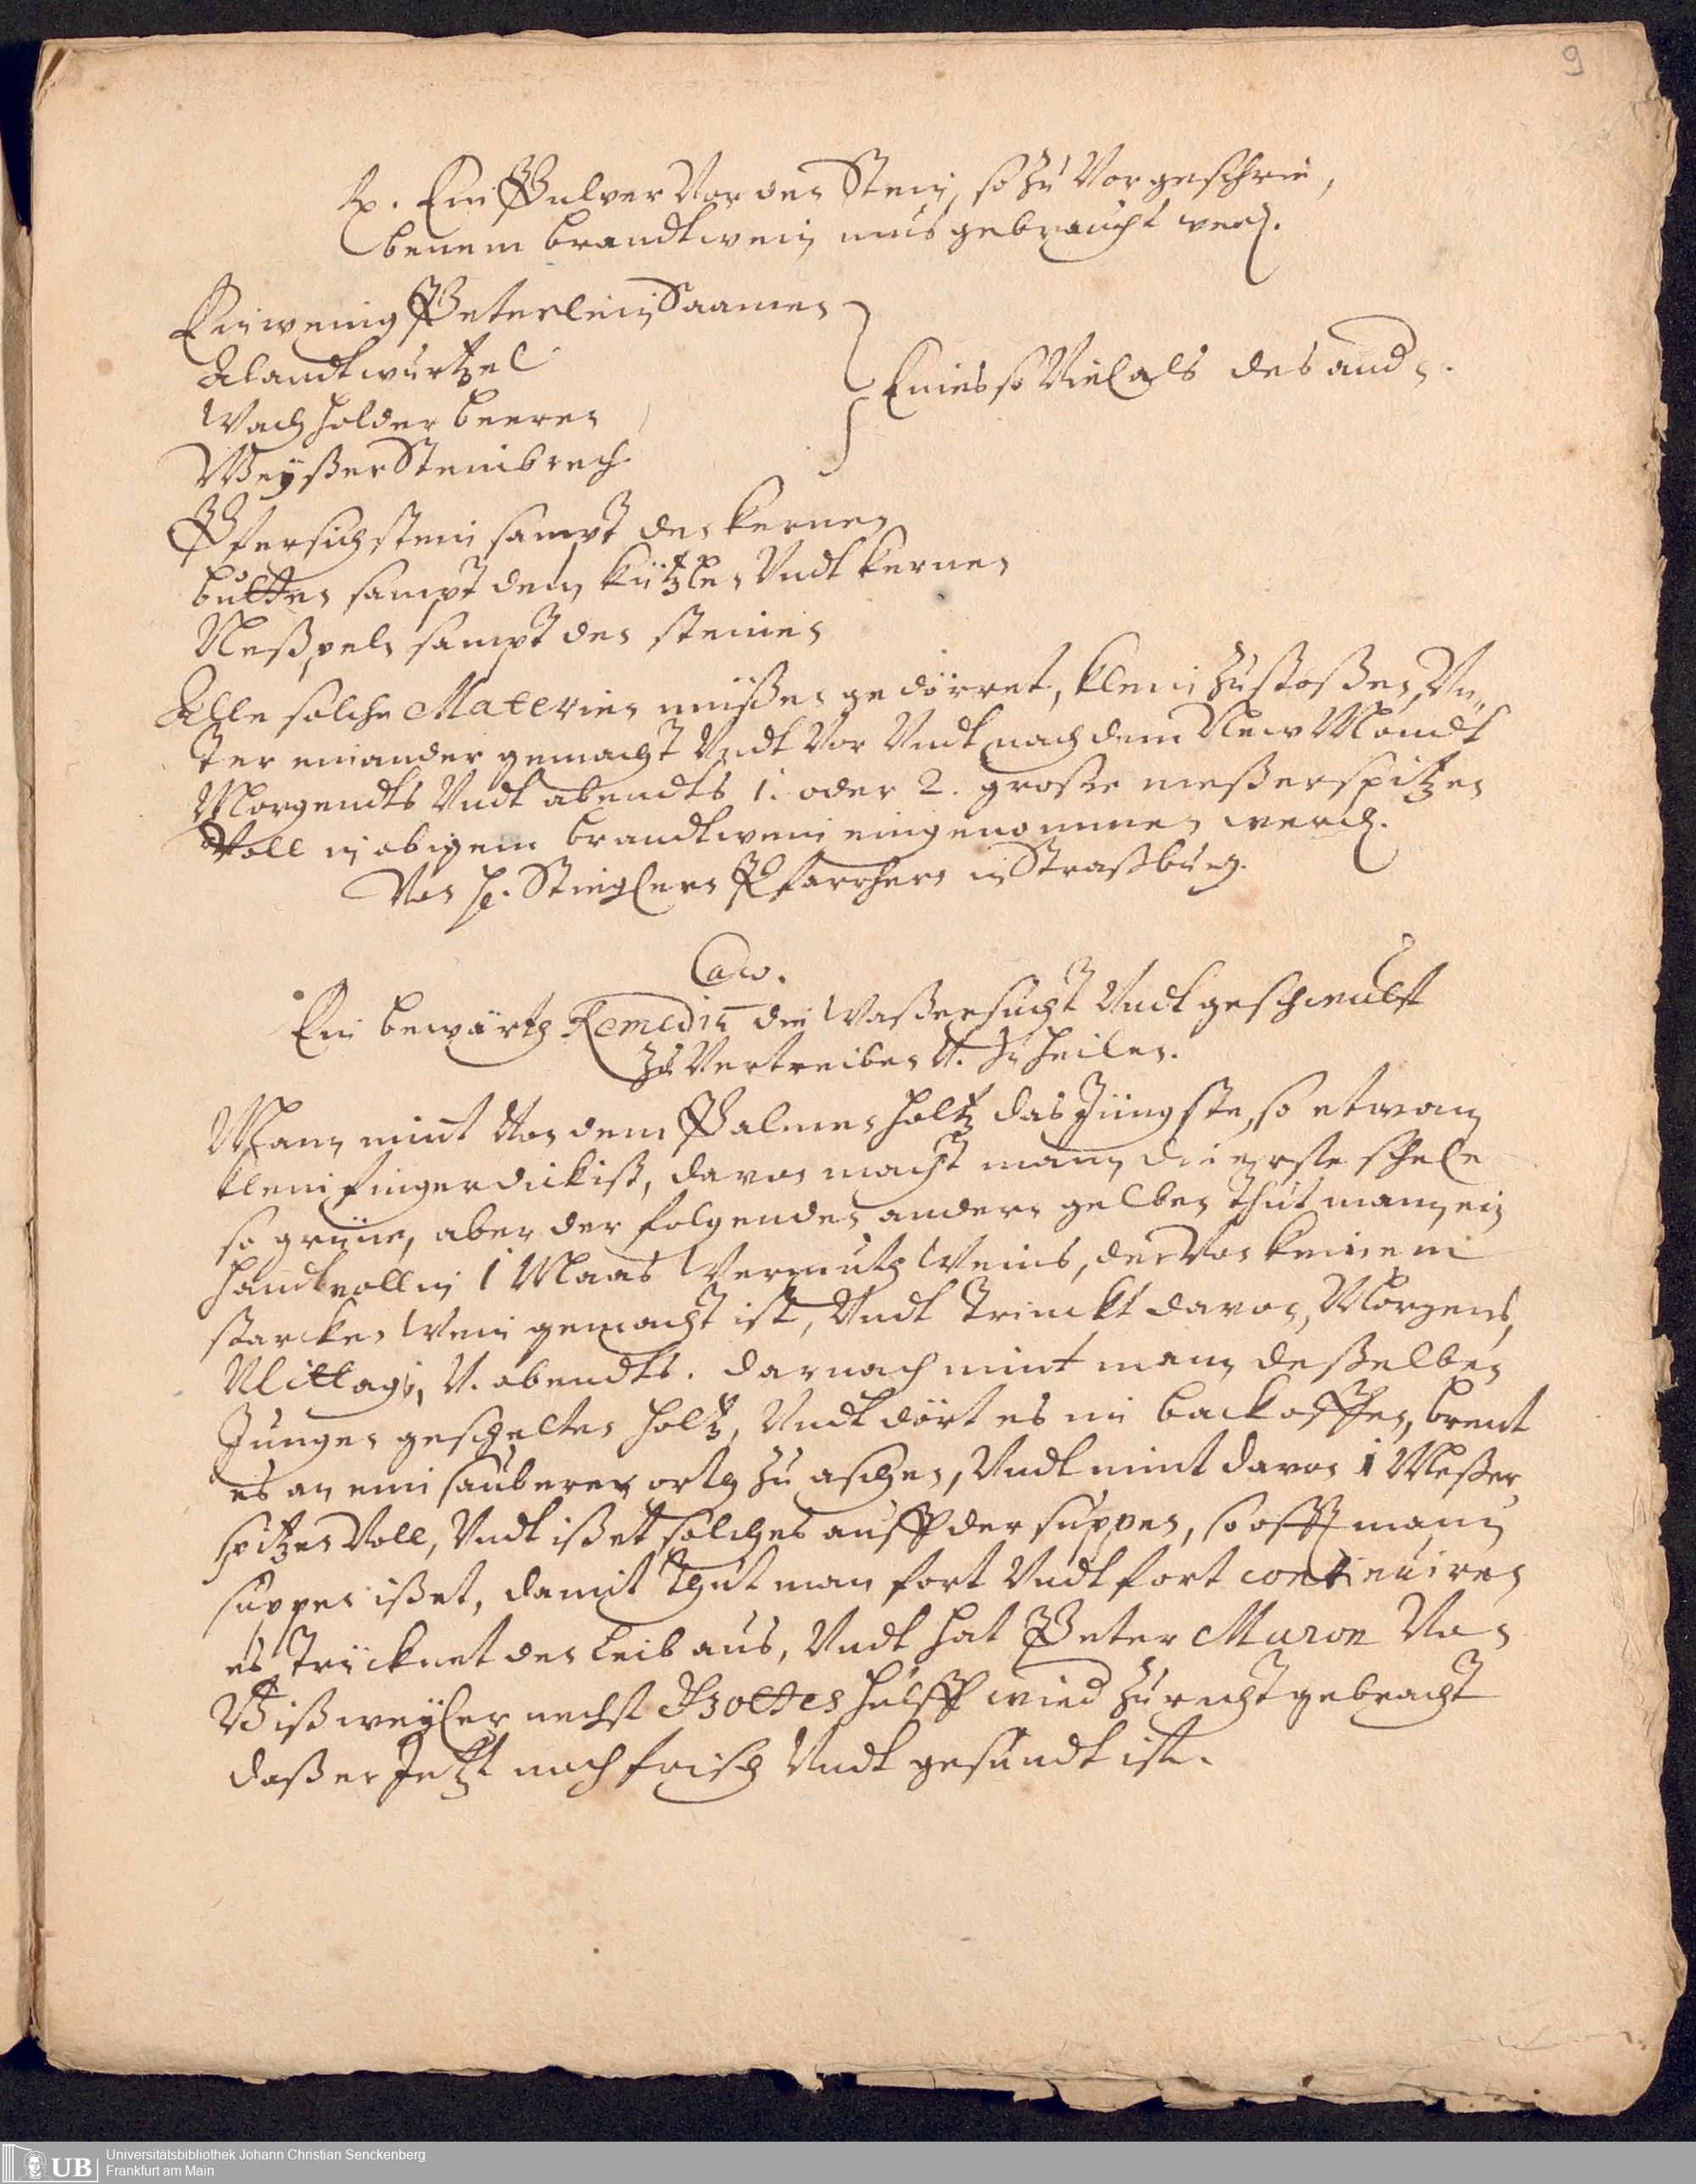 9
Rp. Ein Pulver Vor den Stein, so zu Vorgeschrie,
benem brandtwein mus gebraucht werd.
Ein wenig Peterlein Saamen
Alandtwurtzel
Wachholder beeren
Weyßer Steinbrech
Eines so Viel als des and.
Pfersichstein sampt den kernen
butten sampt dem kützlen Vndt kernen
Neßpeln sampt den steinen
Alle solche Materien müßen gedörret, klein zustoßen, Vn„
ter einander gemacht Vndt Vor Vndt nach dem New Mondt
Morgendts Vndt abendts 1. oder 2. große meßerspitzen
Voll in obigem brandtwein eingenommen werd.
Von H. Stieglern Pfarrhern in Straßburg.
Ein bewärth Remediū die Waßersucht Vndt geschwulst
zu Vertreiben V. zu heilen.
Mann nimt Von dem Palmen holtz das Jüngste, so etwann
klein finger dick ist, davon macht mann die erste schele
so grüne, aber der folgenden andern gelben thut mann ein
handtvoll in 1 Maas Wermuth Weins, der Von keinem
starcken Wein gemacht ist, Vndt Trinckt davon, Morgens,
Mittags, V. abendts. darnach nimt mann deßelben
Jungen geschelten holtz, Vndt dört es im backoffen, brent
es an eim sauberen orth zu aschen, Vndt nimt davon 1 Meßer
spitzen Voll, Vndt ißet solches auff der suppen, so offt mann
suppen ißet, damit Thut man fort Vndt fort continuiren
es Trücknet den Leib aus, Vndt hat Peter Muron Von
Bißweyler nechst Gottes hülff wied zu recht gebracht
daß er Jetzt noch frisch Vndt gesundt ist.
UB
Universitätsbibliothek Johann Christian Senckenberg
Frankfurt am Main